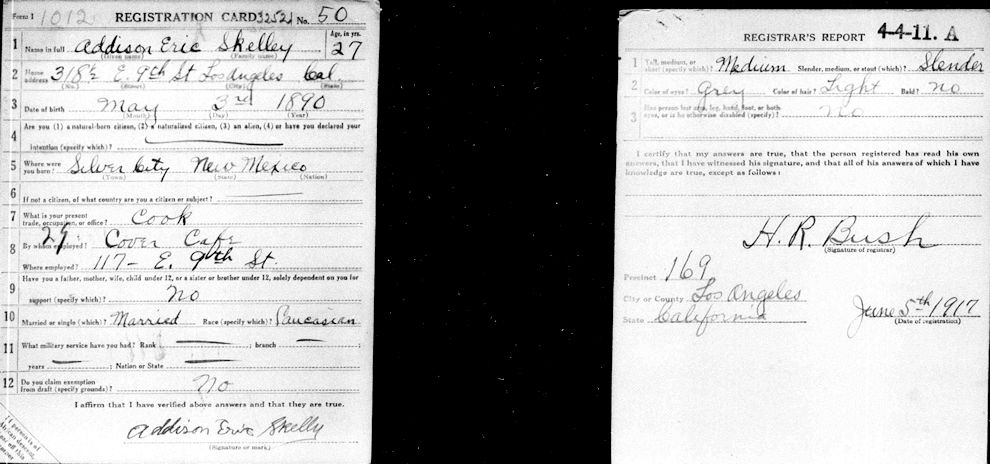 Form 1 1012 REGISTRATION CARD 32521 No. 50
1 Name in full Addison Eric Skelley Age, in yrs. 27
(Given name) (Family name)
2 Home address 318½ E. 9th St Los Angeles Cal.
(No.) (Street) (City) (State)
3 Date of birth May 3rd 1890
(Month) (Day) (Year)
4 Are you (1) a natural-born citizen, (2) a naturalized citizen, (3) an alien, (4) or have you declared your
intention (specify which)?
5 Where were you born? Silver City New Mexico
(Town) (State) (Nation)
6 If not a citizen, of what country are you a citizen or subject?
7 What is your present trade, occupation, or office? Cook
29
8 By whom employed? Cover Cafe
Where employed? 117- E. 9th St.
9 Have you a father, mother, wife, child under 12, or a sister or brother under 12, solely dependent on you for
support (specify which)? No
10 Married or single (which)? Married Race (specify which)? Caucasian
11 What military service have you had? Rank ; branch ;
years ; Nation or State
12 Do you claim exemption from draft (specify grounds)? No
I affirm that I have verified above answers and that they are true.
Addison Eric Skelly
(Signature or mark)
If person is of
African descent,
off this
corner
REGISTRAR'S REPORT 4-4-11. A
1 Tall, medium, or short (specify which)? Medium Slender, medium, or stout (which)? Slender
2 Color of eyes? Grey Color of hair? Light Bald? No
3 Has person lost arm, leg, hand, foot, or both eyes, or is he otherwise disabled (specify)? No
I certify that my answers are true, that the person registered has read his own
answers, that I have witnessed his signature, and that all of his answers of which I have
knowledge are true, except as follows:
H. R. Bush
(Signature of registrar)
Precinct 169
City or County Los Angeles
State California
June 5th 1917
(Date of registration)